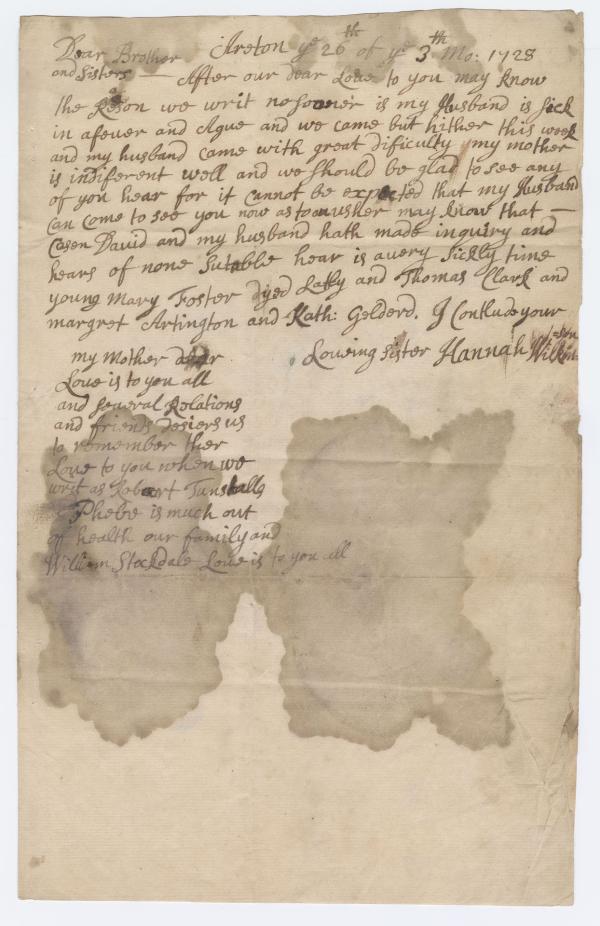 Areton ye 26th of ye 3th Mo: 1728
Dear Brother
and Sisters — After our dear Love to you may know
the Reson we writ no sooner is my Husband is sick
in a fever and Ague and we came but hither this week
and my husband came with great dificulty my mother
is indiferent well and we should be glad to see any
of you hear for it cannot be expected that my Husband
can come to see you now as to may know that —
Casen David and my husband hath made inquiry and
hears of none Sutable hear is a very Sickly time
young Mary Foster dyed Latly and Thomas Clark and
margret Artington and Kath: Gelderd. I Conclude your
Loveing Sister Hannah Wilkin
=son
my Mother dear
Love is to you all
and several Relations
and friends desiers us
to remember ther
Love to you when we
writ as Robert Tunstalls
Phebe is much out
of health our family and
William Stockdale Love is to you all